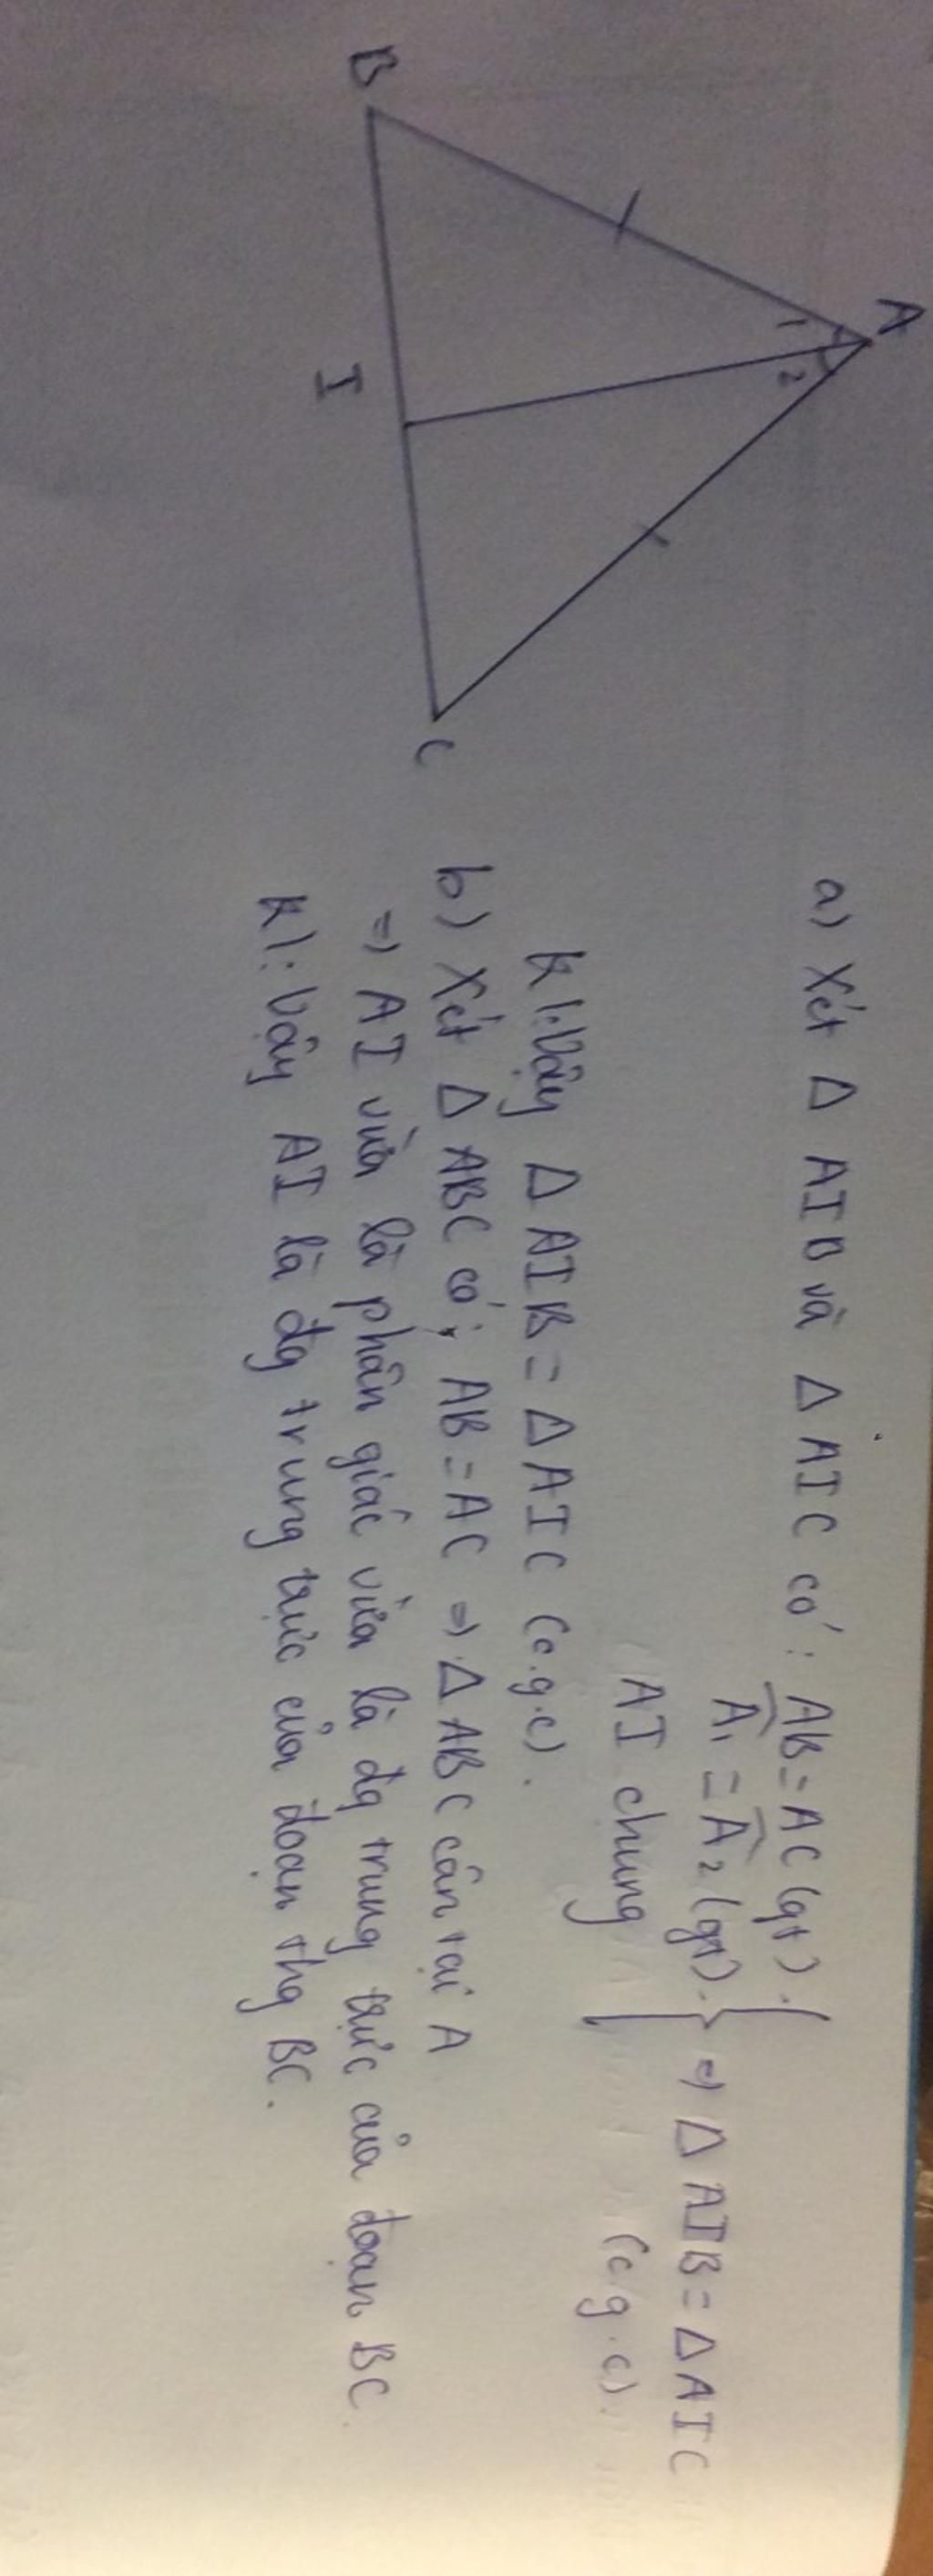 A
1 2
B
I
C
a) Xét Δ AIB và Δ AIC có: AB = AC (gt)
Â₁ = Â₂ (gt) } => Δ AIB = Δ AIC
AI chung (c.g.c).
kl: Vậy Δ AIB = Δ AIC (c.g.c).
b) Xét Δ ABC có; AB = AC => Δ ABC cân tại A
=> AI vừa là phân giác vừa là đg trung trực của đoạn BC.
kl: Vậy AI là đg trung trực của đoạn thg BC.